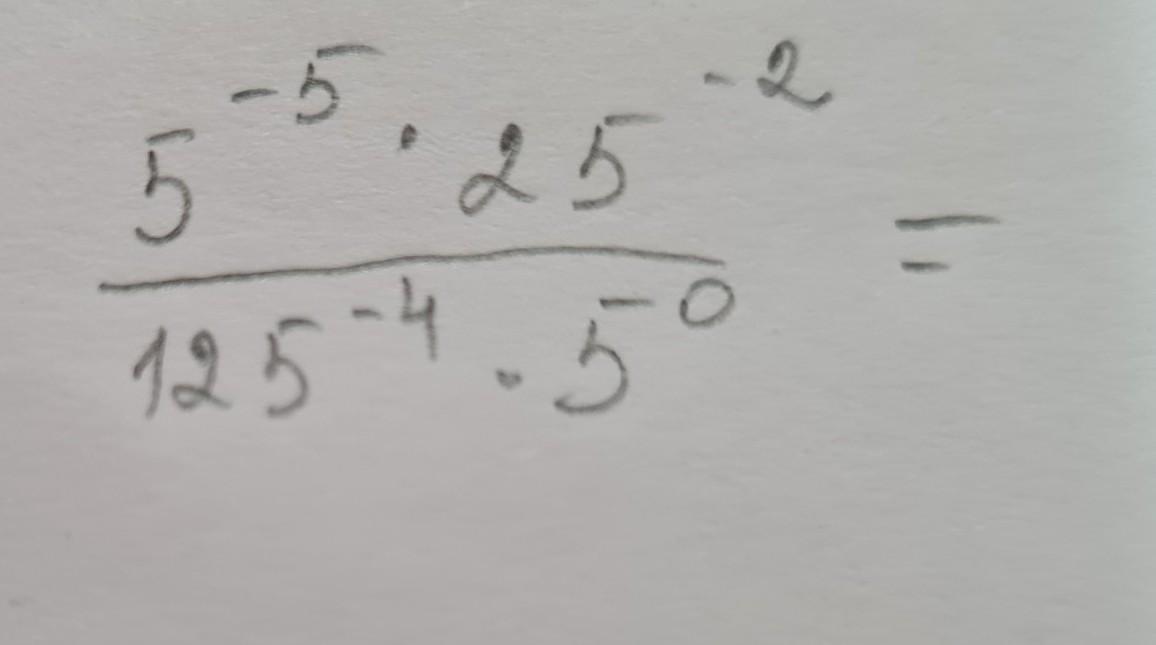 5^-5 · 25^-2 =
125^-4 · 5^0